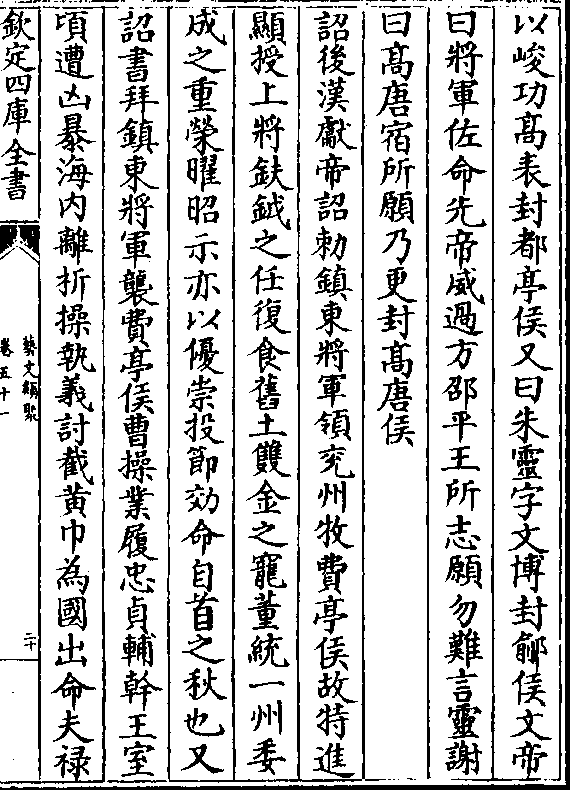 以峻功高表封都亭侯又曰朱靈字文博封鄃侯文帝
曰將軍佐命先帝威過方邵平王所志願勿難言靈謝
曰高唐宿所願乃更封高唐侯
詔後漢獻帝詔勅鎮東將軍領兖州牧費亭侯故特進
顯授上將鈇鉞之任復食舊土雙金之寵董統一州委
成之重榮曜昭示亦以優崇投節効命自首之秋也又
詔書拜鎮東將軍襲費亭侯曹操業履忠貞輔幹王室
頃遭凶暴海内離折操執義討截黄巾為國出命夫禄
欽定四庫全書
藝文類聚
卷五十一
二十